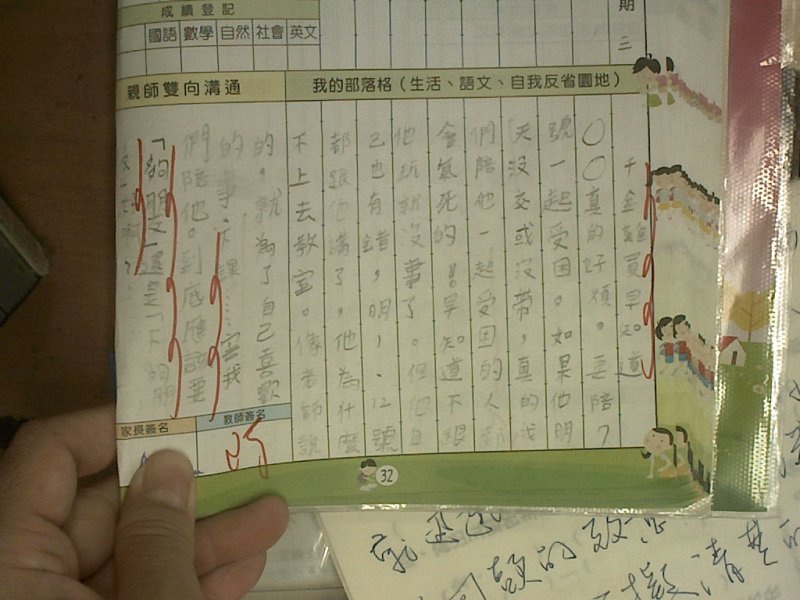 成績登記
國語 數學 自然 社會 英文
期三
親師雙向溝通
我的部落格（生活、語文、自我反省園地）
千金難買早知道
○○真的好煩。要陪7
號一起受困。如果他明
天沒交或沒帶，真的我
們陪他一起受困的人都
會氣死的！早知道不跟
他玩就沒事了。但他自
己也有錯，明，12號
都跟他講了。他為什麼
不上去教室。像老師說
的，就為了自己喜歡
的事，下課……害我
們陪他。到底應該要
「夠朋友」還是「不夠朋
友」
家長簽名
教師簽名
32
我
的效
清楚